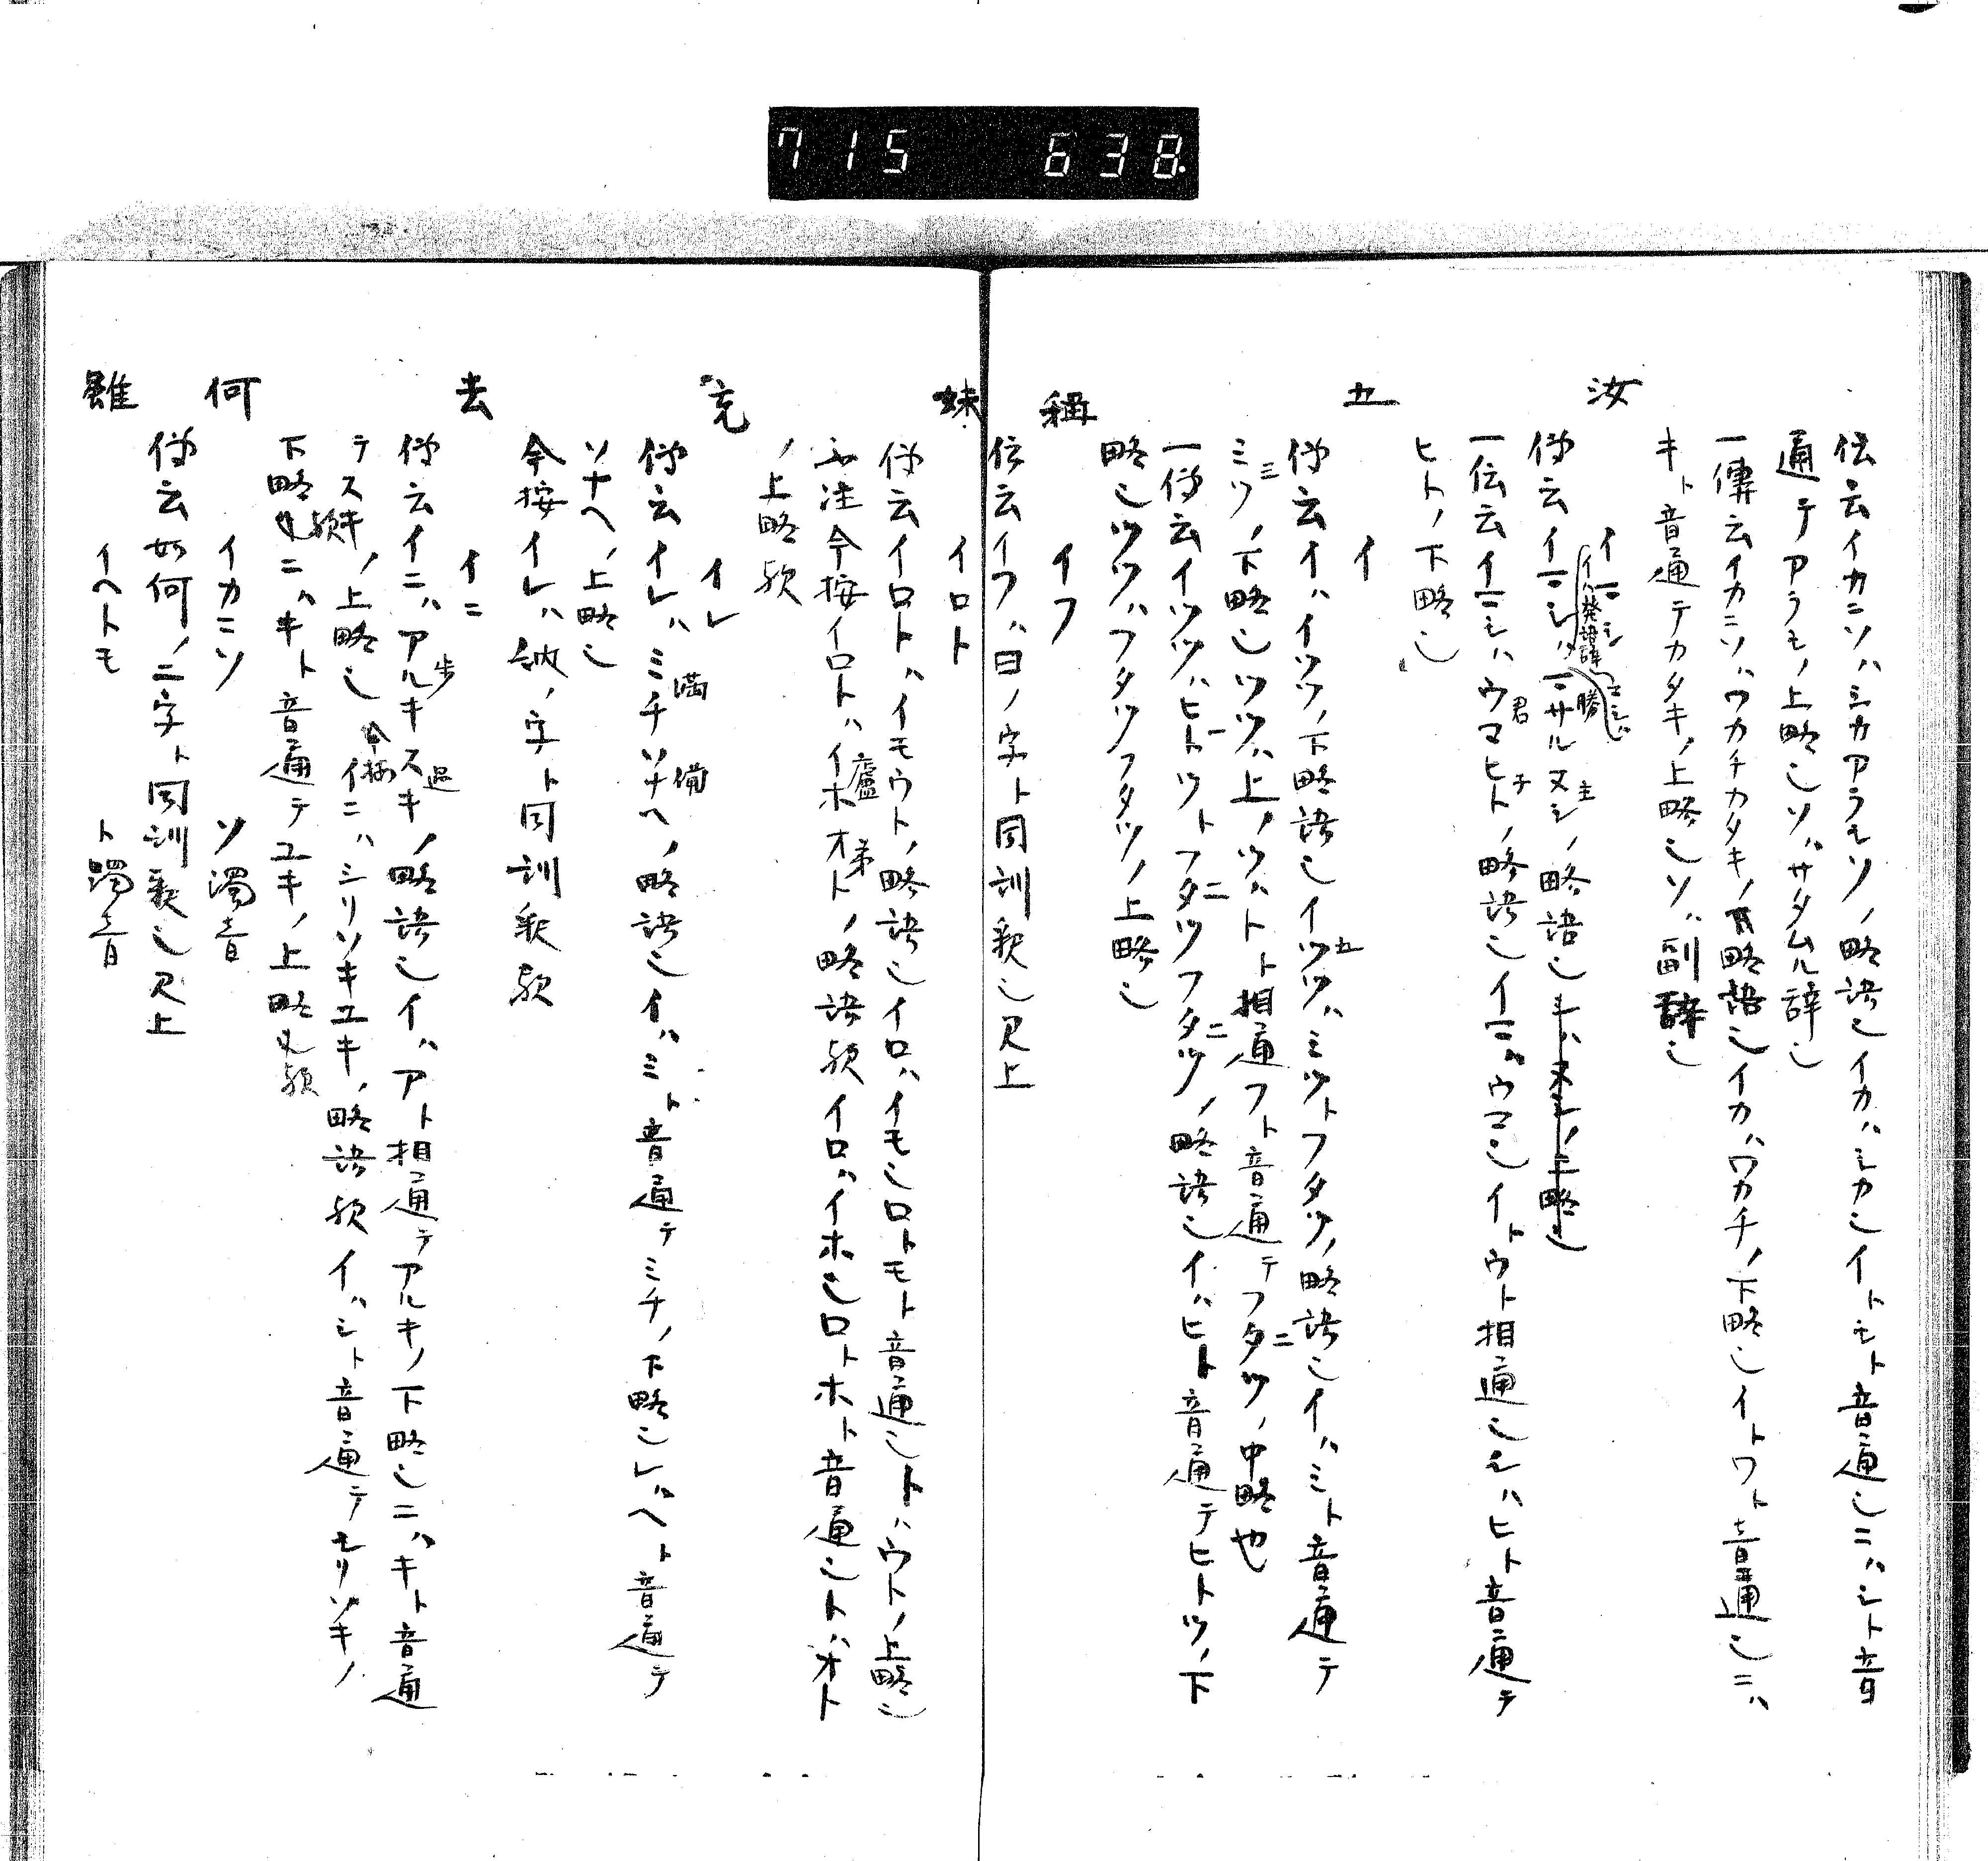 715 638
伝云イカニソハシカアラモソノ略語也イカハシカ也イトモト音通也ニハシト音
通テアラモノ上略也ソハサタムル辞也
一傳云イカニソハワカチカタキノ略語也イカハワカチノ下略也イトワト音通也ニハ
キト音通テカタキノ上略也ソハ副辞也
汝 イマシ
伝云イマシハマサルヌシノ略語也
一伝云イマシハウマヒトノ略語也イマハウマ也イトウト相通也シハヒト音通テ
ヒトノ下略也
五 イ
伝云イハイツツノ下略語也イツツハミツトフタツノ略語也イハミト音通テ
ミツノ下略也ツツハ上ノツハトト相通フト音通テフタツノ中略也
一伝云イツツハヒトツトフタツフタツノ略語也イハヒト音通テヒトツノ下
略也ツツハフタツフタツノ上略也
稱 イフ
伝云イフハ曰ノ字ト同訓釈也見上
妹 イロト
伝云イロトハイモウトノ略語也イロハイモ也ロトモト音通也トハウトノ上略也
不注今按イロトハイホオトノ略語欤イロハイホ也ロトホト音通也トハオト
ノ上略欤
充 イレ
伝云イレハミチソナヘノ略語也イハミト音通テミチノ下略也レハヘト音通テ
ソナヘノ上略也
今按イレハ納ノ字ト同訓釈欤
去 イニ
伝云イニハアルキスキノ略語也イハアト相通テアルキノ下略也ニハキト音通
テスキノ上略也今按イニハシリソキユキノ略語欤イハシト音通テシリソキノ
下略也ニハキト音通テユキノ上略也欤
何 イカニソ ソ濁音
伝云如何ノ二字ト同訓釈也見上
雖 イヘトモ ト濁音